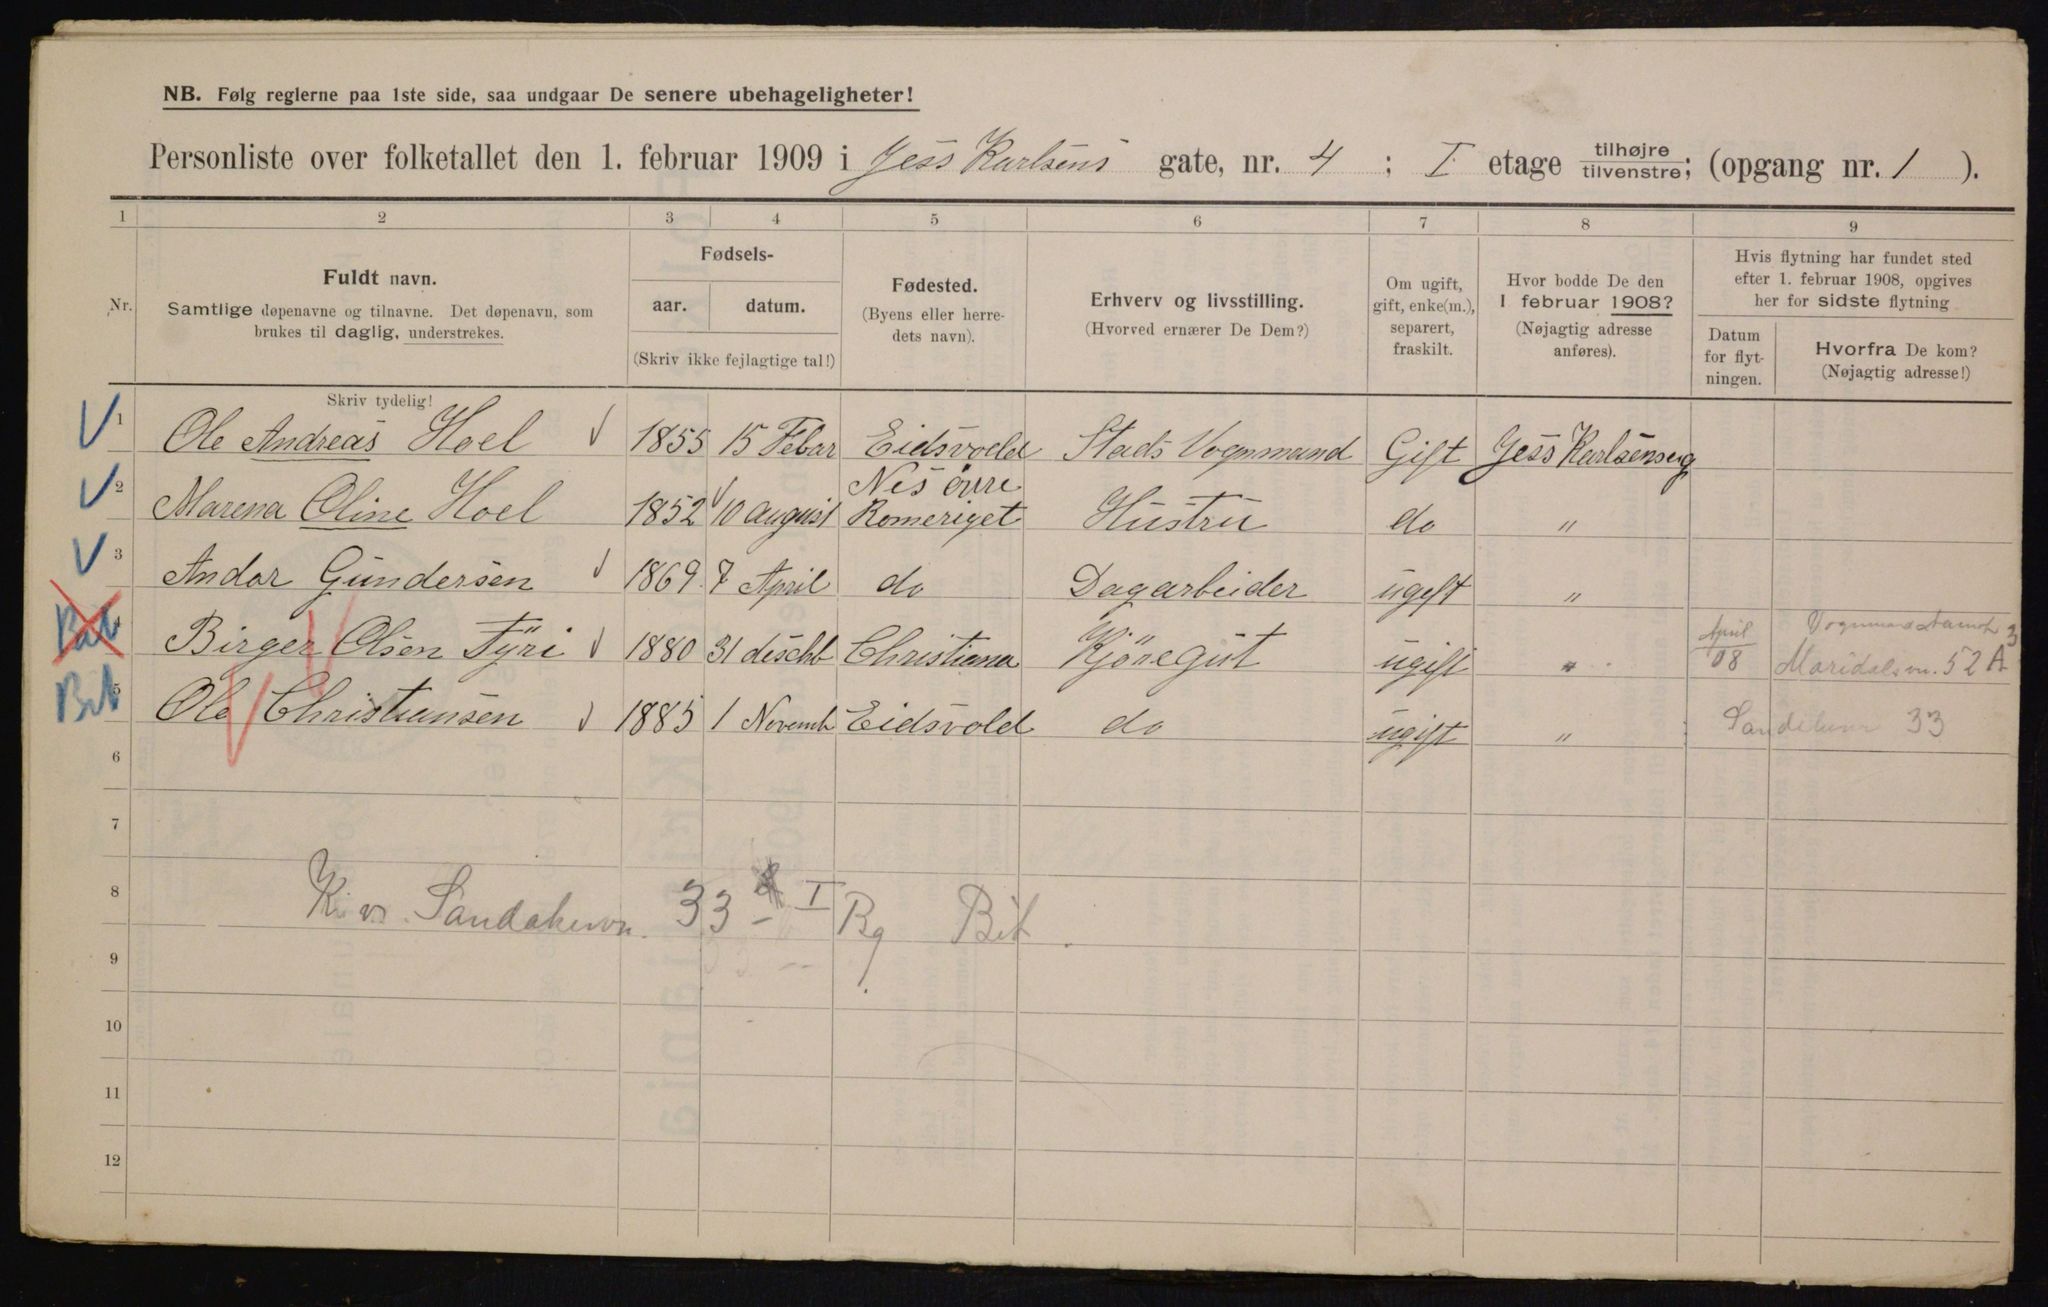 NB. Følg reglerne paa 1ste side, saa undgaar De senere ubehageligheter!
Personliste over folketallet den 1. februar 1909 i Jess Karlsens gate, nr. 4 ; I etage tilhøjre/tilvenstre; (opgang nr. 1 ).
1 2 3 4 5 6 7 8 9
Nr.
Fuldt navn.
Samtlige døpenavne og tilnavne. Det døpenavn, som
brukes til daglig, understrekes.
Skriv tydelig!
Fødsels-
aar. datum.
(Skriv ikke fejlagtige tal!)
Fødested.
(Byens eller herre-
dets navn).
Erhverv og livsstilling.
(Hvorved ernærer De Dem?)
Om ugift,
gift, enke(m.),
separert,
fraskilt.
Hvor bodde De den
1 februar 1908?
(Nøjagtig adresse
anføres).
Hvis flytning har fundet sted
efter 1. februar 1908, opgives
her for sidste flytning
Datum
for flyt-
ningen.
Hvorfra De kom?
(Nøjagtig adresse!)
1 Ole Andreas Hoel 1855 15 Febar Eidsvoeld Stads Vognmand Gift Jess Karlsensg
2 Marena Oline Hoel 1852 10 august Nes övre Romeriget Hustru do "
3 Andor Gundersen 1869 7 April do Dagarbeider ugift "
4 Birger Olsen Fyri 1880 31 deschb Christiana Kjöregut ugift " April 08 Maridalsvn. 52 A
Bit 5 Ole Christiansen 1885 1 Novemb Eidsvold do ugift " 33
6
7
8 Sandakervn. 33 I Bg Bit.
9
10
11
12